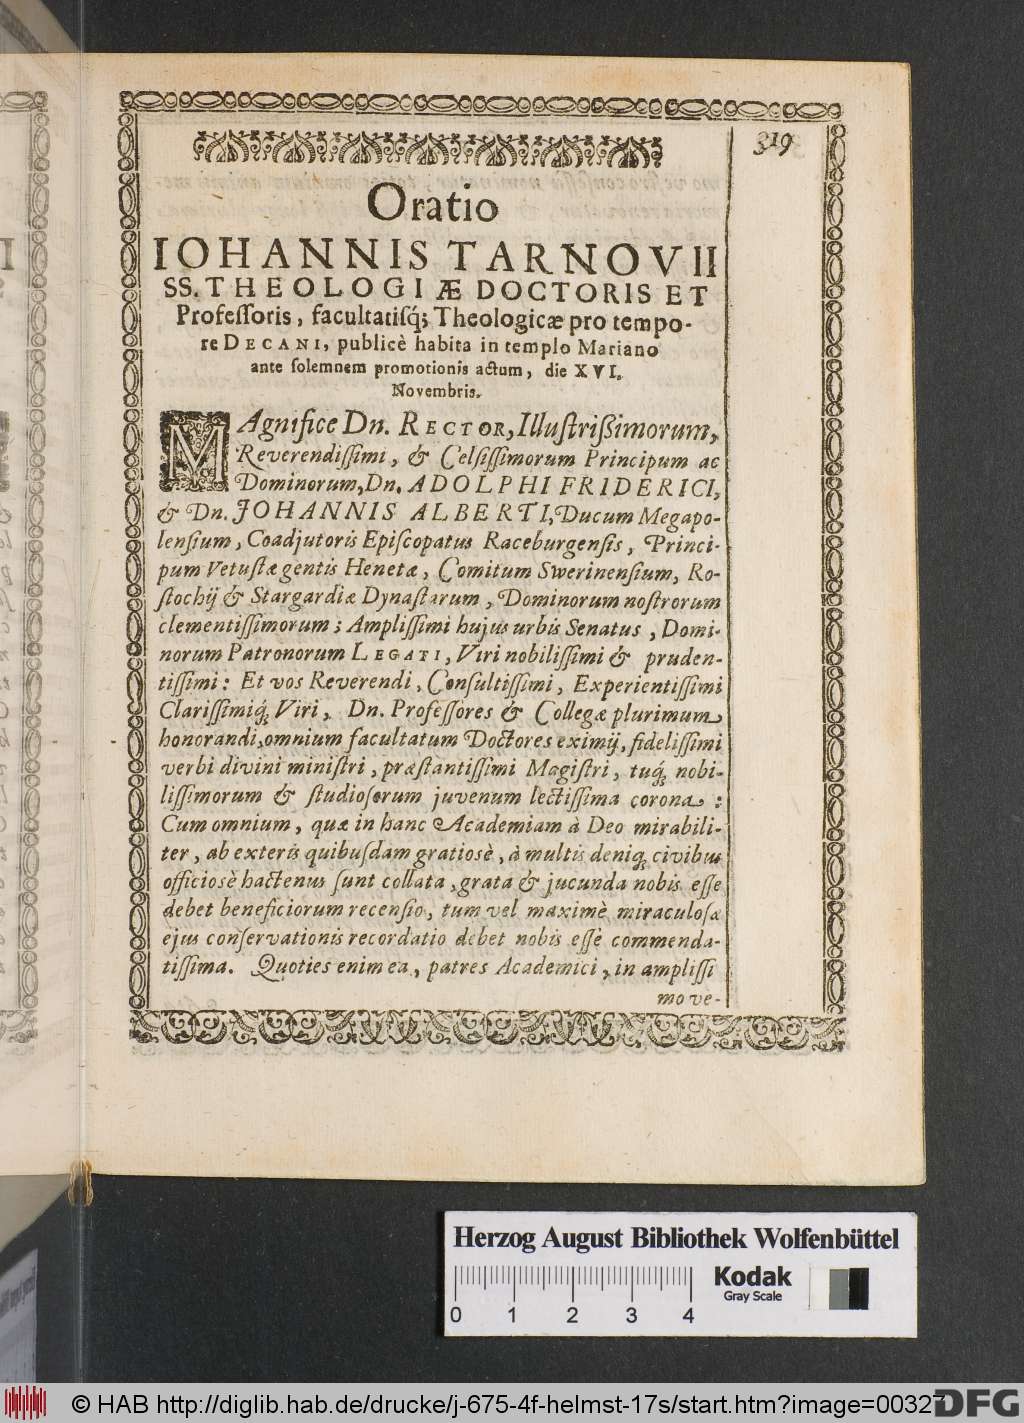 319
Oratio
IOHANNIS TARNOVII
SS. THEOLOGIÆ DOCTORIS ET
Professoris, facultatisq́; Theologicæ pro tempo-
re DECANI, publicè habita in templo Mariano
ante solemnem promotionis actum, die XVI.
Novembris.
MAgnifice Dn. RECTOR, Illustrißimorum,
Reverendissimi, & Celsissimorum Principum ac
Dominorum, Dn. ADOLPHI FRIDERICI,
& Dn. JOHANNIS ALBERTI, Ducum Megapo-
lensium, Coadjutoris Episcopatus Raceburgensis, Princi-
pum Vetustæ gentis Henetæ, Comitum Swerinensium, Ro-
stochij & Stargardiæ Dynastarum, Dominorum nostrorum
clementissimorum; Amplissimi hujus urbis Senatus, Domi-
norum Patronorum LEGATI, Viri nobilissimi & pruden-
tissimi: Et vos Reverendi, Consultissimi, Experientissimi
Clarissimiq́; Viri, Dn. Professores & Collegæ plurimum
honorandi, omnium facultatum Doctores eximij, fidelissimi
verbi divini ministri, præstantissimi Magistri, tuq́; nobi-
lissimorum & studiosorum juvenum lectissima corona:
Cum omnium, quæ in hanc Academiam à Deo mirabili-
ter, ab exteris quibusdam gratiosè, à multis deniq; civibus
officiosè hactenus sunt collata, grata & jucunda nobis esse
debet beneficiorum recensio, tum vel maximè miraculosæ
ejus conservationis recordatio debet nobis esse commenda-
tissima. Quoties enim ea, patres Academici, in amplissi
mo ve-
Herzog August Bibliothek Wolfenbüttel
Kodak
Gray Scale
0 1 2 3 4
© HAB http://diglib.hab.de/drucke/j-675-4f-helmst-17s/start.htm?image=00327
DFG